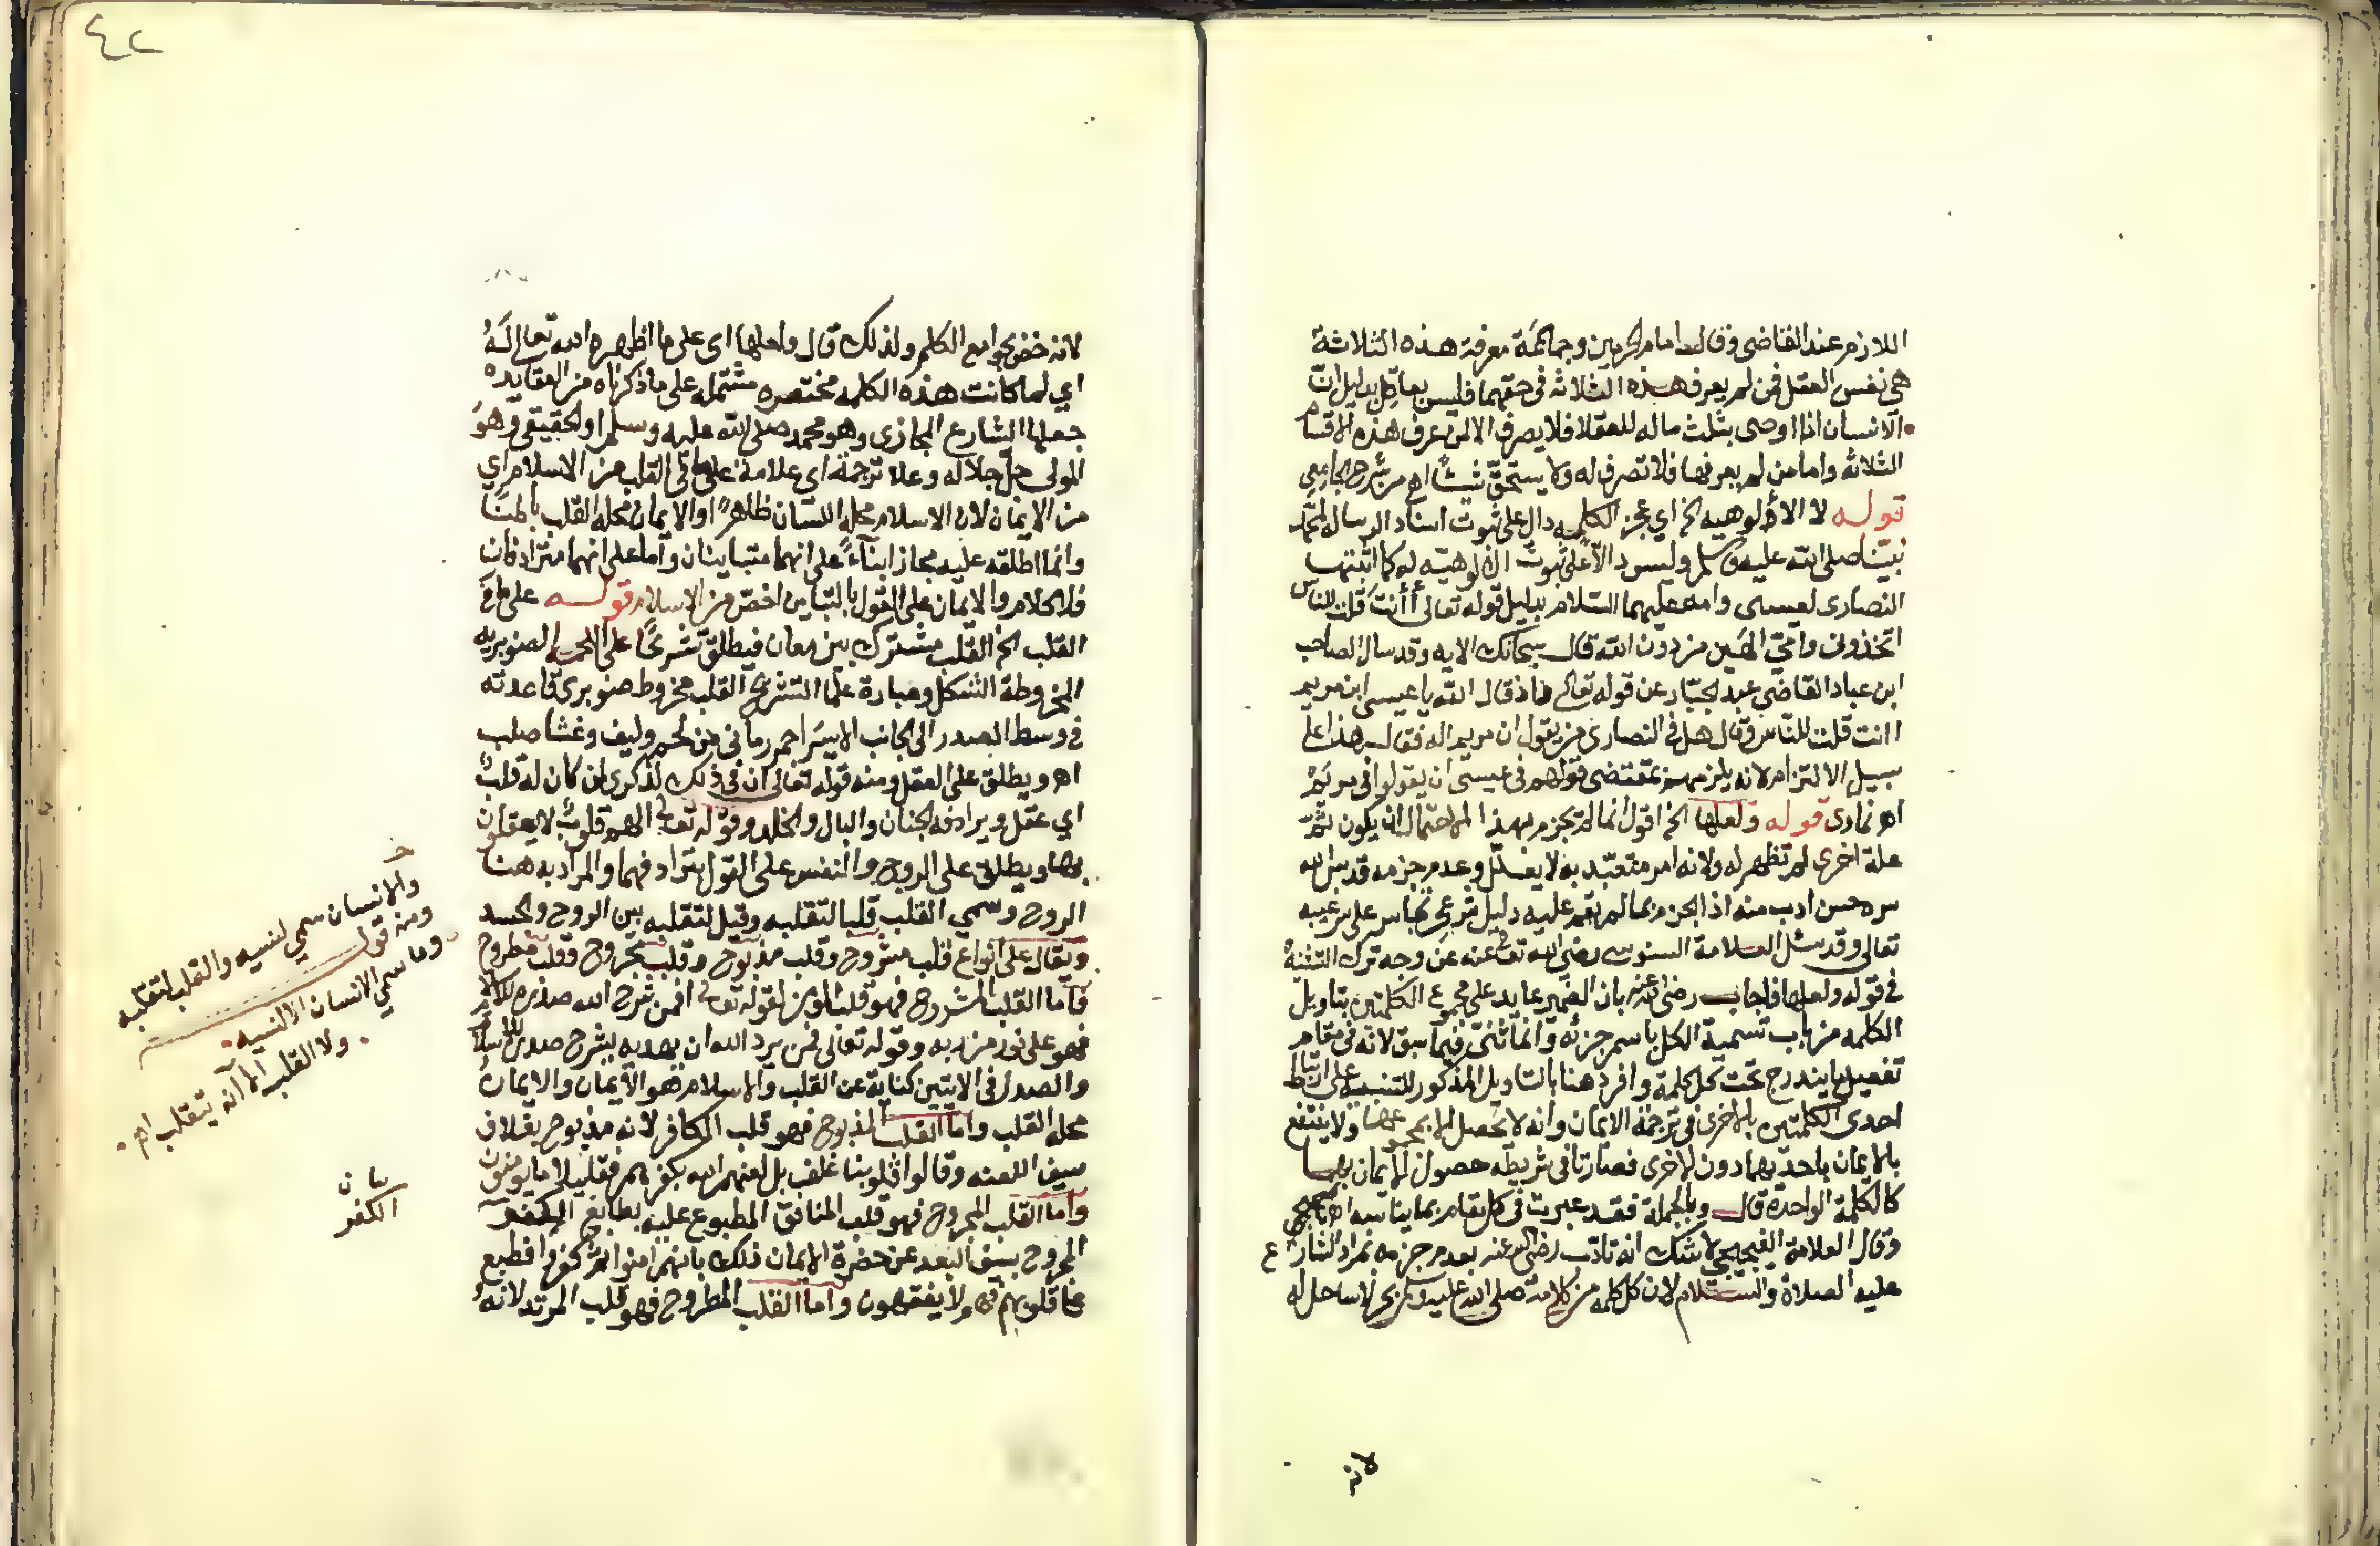 اللازم عند القاضي وقال امام الحرمين وجماعة معرفة هذه الثلاثة
هي نفس العقل فمن لم يعرف هذه الثلاثه في حقهما فليس بعاقل بدليل انّ
الانسان اذا اوصى بثلث ماله للعقلا فلا يصرف الا لمن عرف هذه الاقسام
الثلاثه واما من لم يعرفها فلا تصرف له ولا يستحقّ شيئًا اهـ من شرح
قوله لا الألوهيه الخ اي عجز الكلمه دال على ثبوت اسناد الرساله لمحمد
نبيّنا صلى الله عليه وسلم وليس دالّا على ثبوت الالوهيّه له كما اثبتتها
النصارى لعيسى وامه عليهما السّلام بدليل قوله تعالى أأنت قلت للناس
اتخذوني وامّي الهين من دون الله قال سبحانك الايه وقد سال الصاحب
ابن عباد القاضي عبد الجبّار عن قوله تعالى واذ قال الله يا عيسى ابن مريم
اانت قلت للنّاس وقال هل في النصارى من يقول ان مريم اله فقال هذا على
سبيل الالتزام لانه يلزمهم بمقتضى قولهم في عيسى ان يقولوا في مريم
اهـ قوله ولعلها الخ اقول انما لم يجزم بهذا لاحتمال ان يكون ثمّ
علة اخرى لم تظهر له ولانه امر متعبّد به لا يعلّل وعدم جزمه قدس الله
سره حسن ادب منه اذ الجزم بما لم يقم عليه دليل شرعي
تعالى وقد سئل العلامة السنوسي رضي الله تعالى عنه عن وجه ترك التثنية
في قوله ولعلها فاجاب رضي الله عنه بان الضمير عايد على مجموع الكلمتين بتاويل
الكلمه من باب تسمية الكل باسم جزئه وانما ثنّى فيما سبق لانه في مقام
تفصيل ما يندرج تحت كل كلمة وافرد هنا بالتاويل المذكور للتنبيه على ارتباط
احدى الكلمتين بالاخرى في ترجمة الايمان وانه لا يحصل الا بمجموعهما ولا ينتفع
بالايمان باحديهما دون الاخرى فصارتا في شريطه حصول الايمان بهما
كالكلمة الواحده قال وبالجملة فقد عبرت في كل مقام بما يناسبه اهـ
وقال العلامة لا شك انه تادّب رضي الله عنه بعدم جزمه بمراد الشارع
عليه الصلاة والسّلام لان كل كلمه من كلامه صلى الله عليه وسلم بحر لا ساحل له
لانه
٤٢
لانه خصّ بجوامع الكلم ولذلك قال ولعلها اى على ما اظهره الله تعالى لهُ
اي لما كانت هذه الكلمه مختصره مشتمله على ما ذكرناه من العقايده
جعلها الشارع المجازى وهو محمد صلى الله عليه وسلم او الحقيقي وهوَ
المولى جلّ جلاله وعلا ترجمة اى علامة على ما في القلب من الاسلام اي
من الايمان لان الاسلام محله اللسان ظاهرًا والايمان محله القلب باطنًا
وانما اطلقه عليه مجازا بناءً على انهما متباينان وامّا على انهما مترادفان
فلا كلام والايمان على القول بالتباين اخصّ من الاسلام قوله على ما في
القلب الخ القلب مشترك بين معان فيطلق شرعًا على اللحمه الصنوبريه
المخروطة الشكل وعبارة علماء التشريح القلب مخروط صنوبرى قاعدته
في وسط الصدر الى الجانب الايسر احمر رماني من لحم وليف وغشا صلب
اهـ ويطلق على العقل ومنه قوله تعالى ان في ذلك لذكرى لمن كان له قلبٌ
اي عقل ويرادفه الجنان والبال والخلد وقوله تعالى الهم قلوبٌ لا يعقلون
بها ويطلق على الروح والنفس على القول بترادفهما والمراد به هنا
الروح وسمي القلب قلبا لتقلبه وقيل لتقلبه بين الروح والجسد
ويقال على انواع قلب مشروح وقلب مذبوح وقلب مجروح وقلب مطروح
فأما القلب المشروح فهو قلب المؤمن لقوله تعالى افمن شرح الله صدره للاسلام
فهو على نور من ربه وقوله تعالى فمن يرد الله ان يهديه يشرح صدره للاسلام
والصدر في الايتين كناية عن القلب والاسلام هو الايمان والايمانُ
محله القلب واما القلب المذبوح فهو قلب الكافر لانه مذبوح بغلاف
سيف اللعنه وقالوا قلوبنا غلف بل لعنهم الله بكفرهم فقليلا ما يومنون
واما القلب المجروح فهو قلب المنافق المطبوع عليه بطابع الكفر
المجروح بسيف البعد عن حضرة الايمان ذلك بانهم امنوا ثم كفروا فطبع
على قلوبهم فهم لا يفقهون واما القلب المطروح فهو قلب المرتد لانهُ
والانسان سمي لنسيه والقلب لتقلّبه
ومنه قول
وما سمي الانسان الا لنسيه
ولا القلب الا انه يتقلب اهـ
الكفر